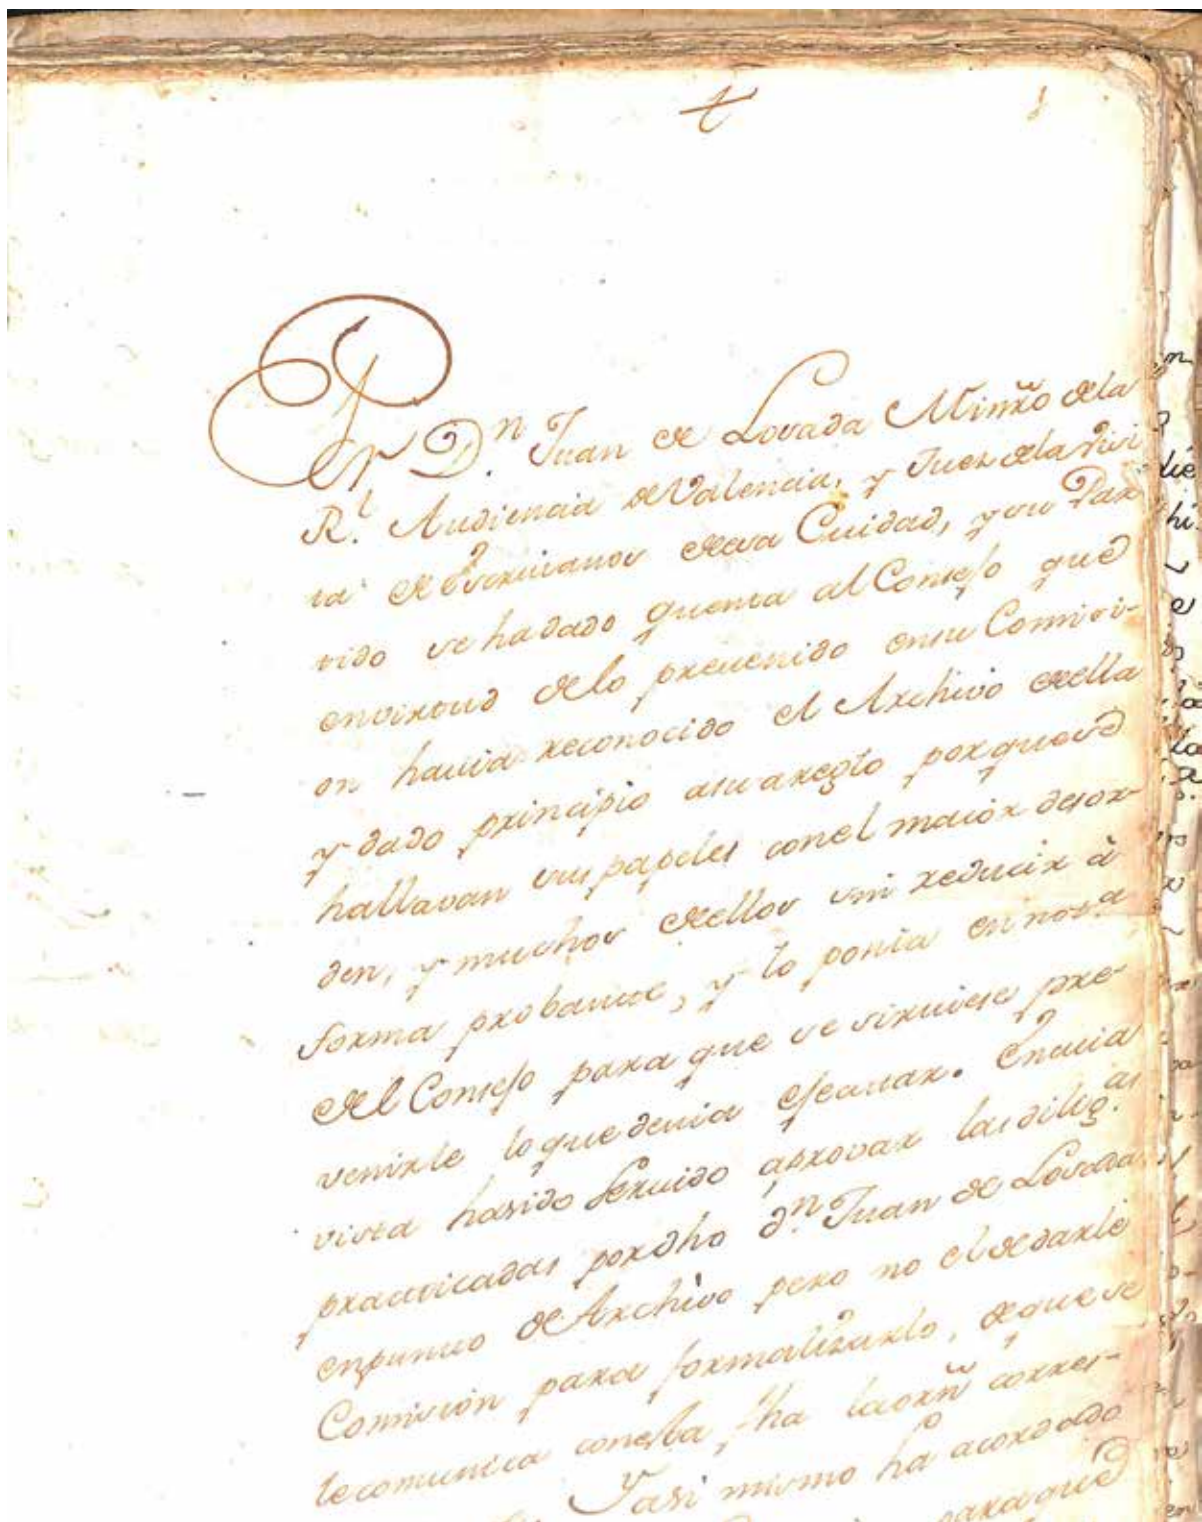 Por D.ⁿ Juan de Losada Minrõ dela
R.ˡ Audiencia de Valencia, y Juez dela Visi
ta de Escrivanos de esa Cuidad, y su Par
tido se ha dado quenta al Consejo que
en virtud delo prevenido en su Comisi-
on havia reconocido el Archivo de ella
y dado principio a su areglo por que se
hallavan sus papeles con el maior desor-
den, y muchos de ellos sin reducir à
forma probante, y lo ponia en not.ª
del Consejo para que se sirviese pre-
venirle lo que devia ejecutar. En cuia
vista ha sido Servido aprovar las dilig.ᵃˢ
practicadas por dho d.ⁿ Juan de Losada
en punto de Archivo pero no el de darle
Comisión para formalizarlo, de que se
le comunica con esta fha la orñ corres-
Y asi mismo ha acordado
para que